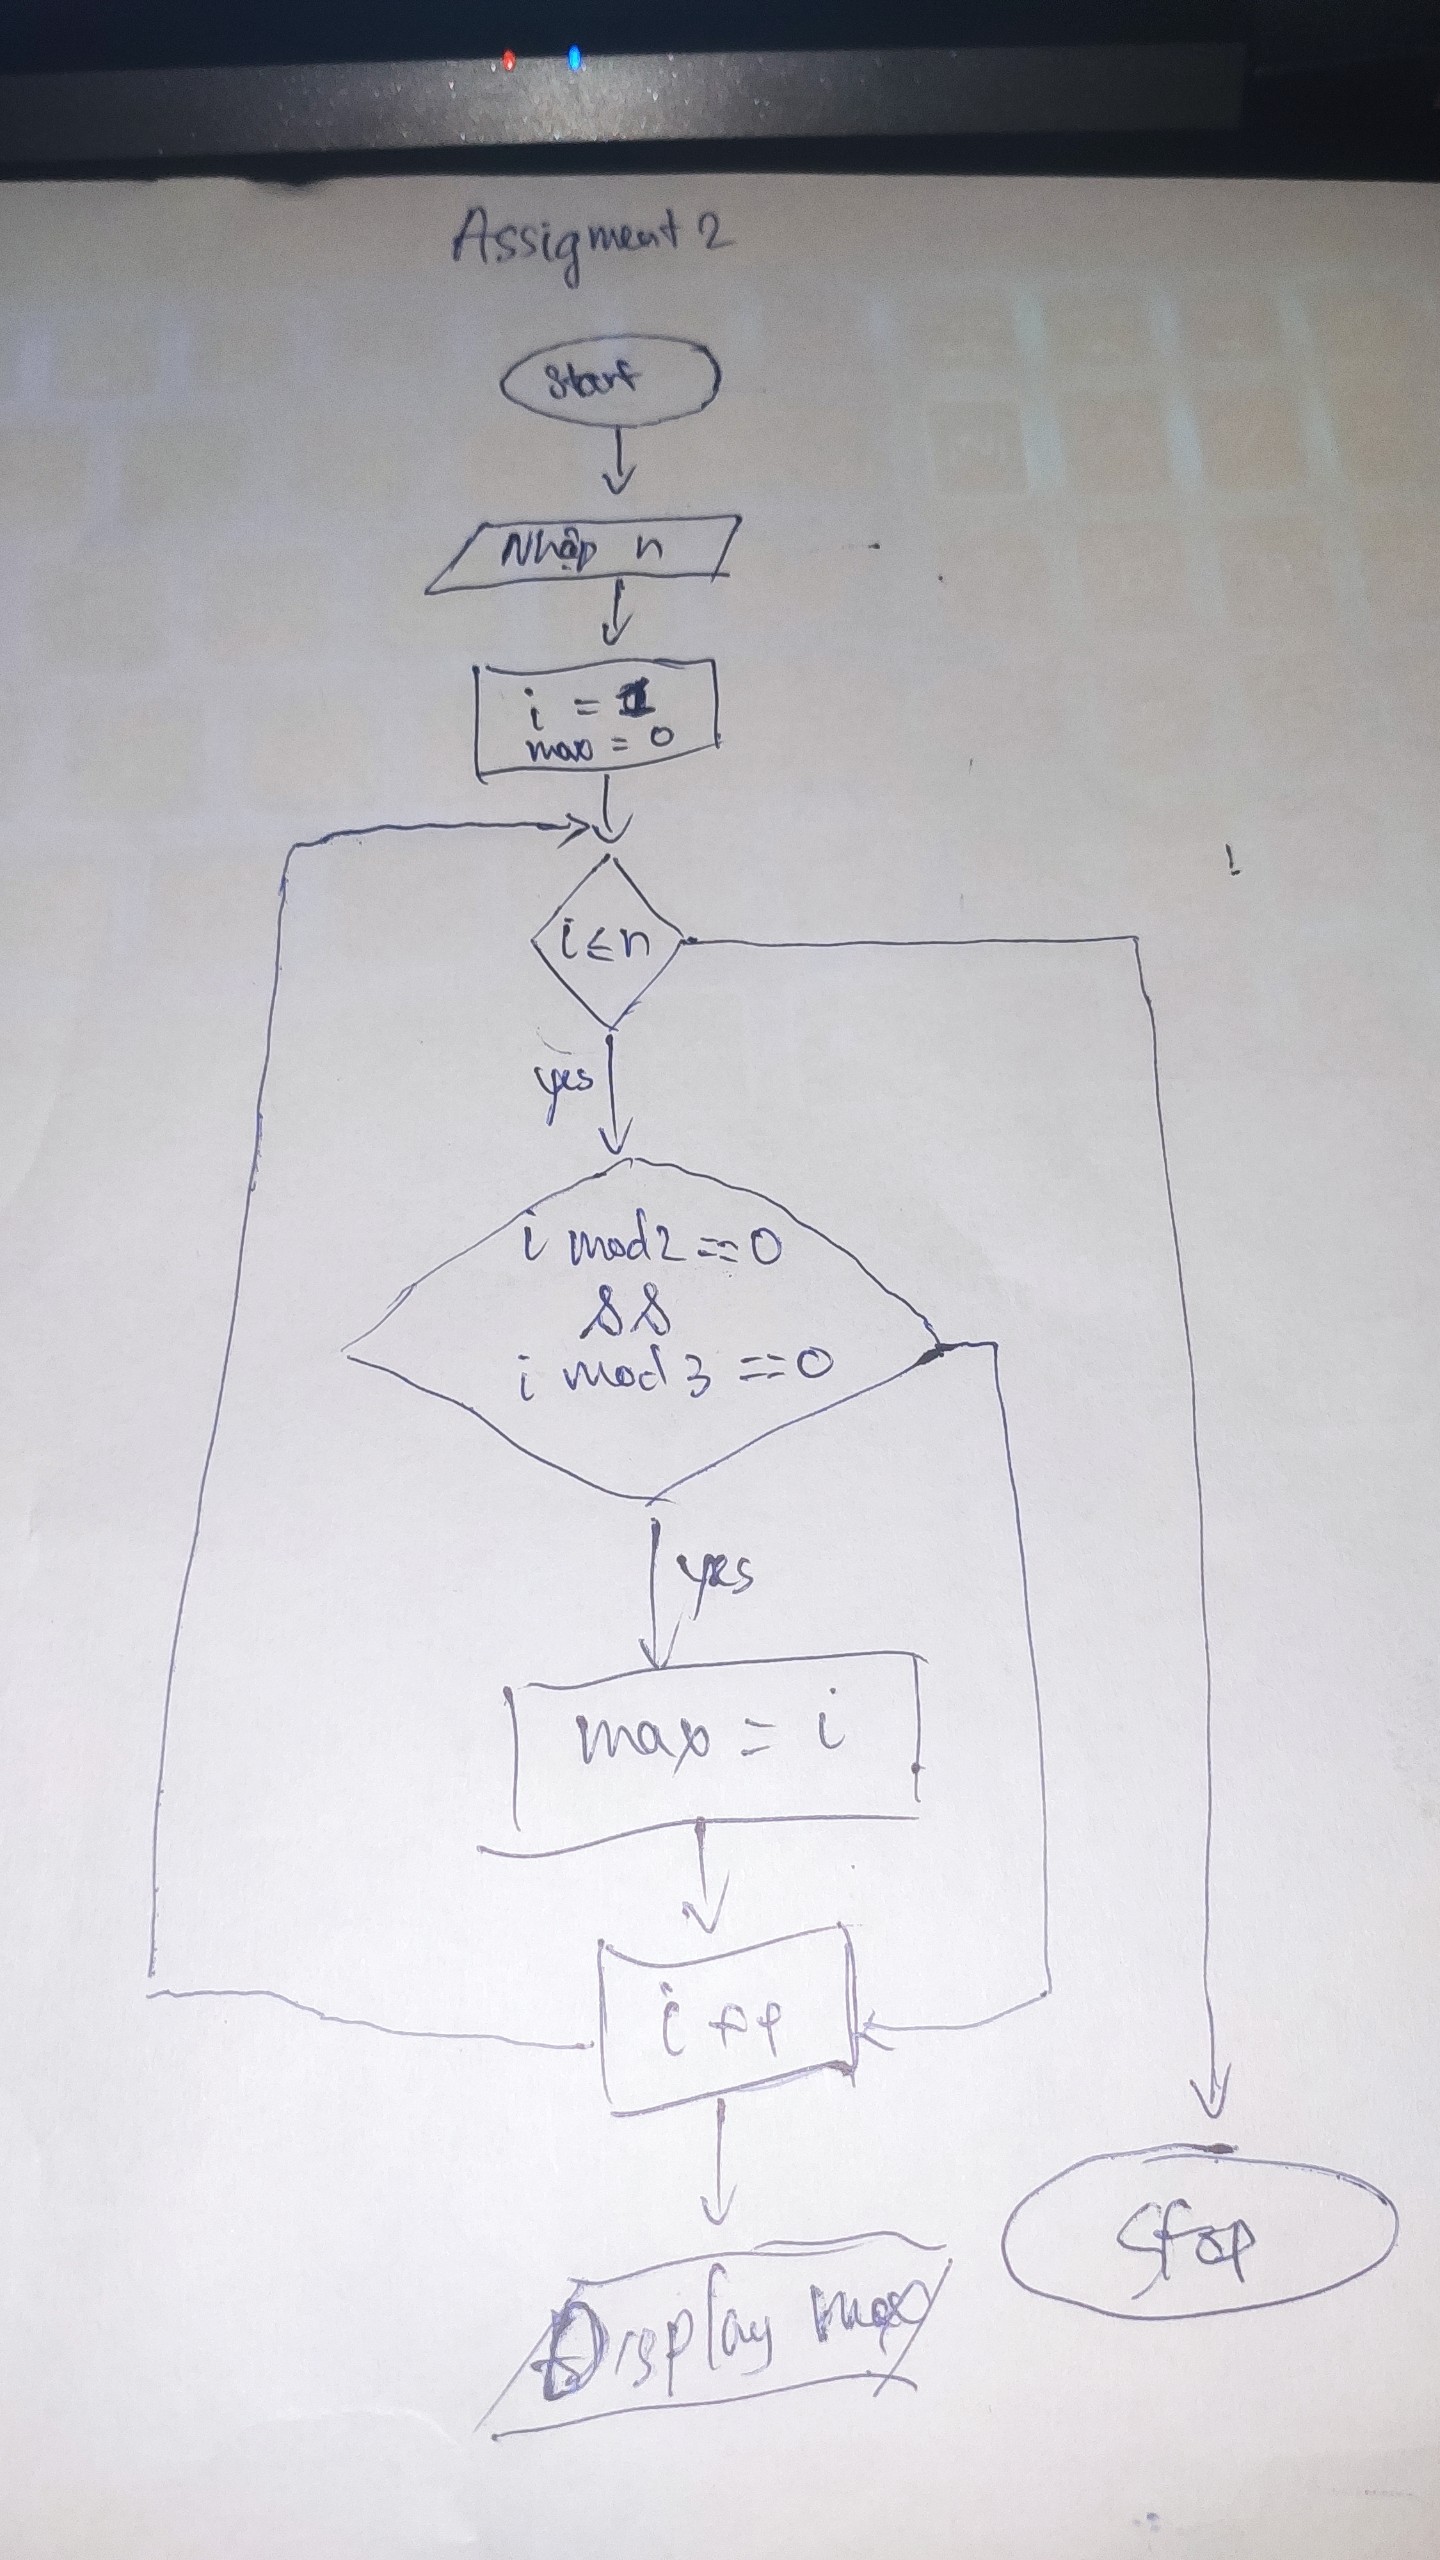 Assigment 2
Start
Nhập n
i = 1
max = 0
i ≤ n
yes
i mod 2 == 0
&&
i mod 3 == 0
yes
max = i
i ++
Display max
Stop